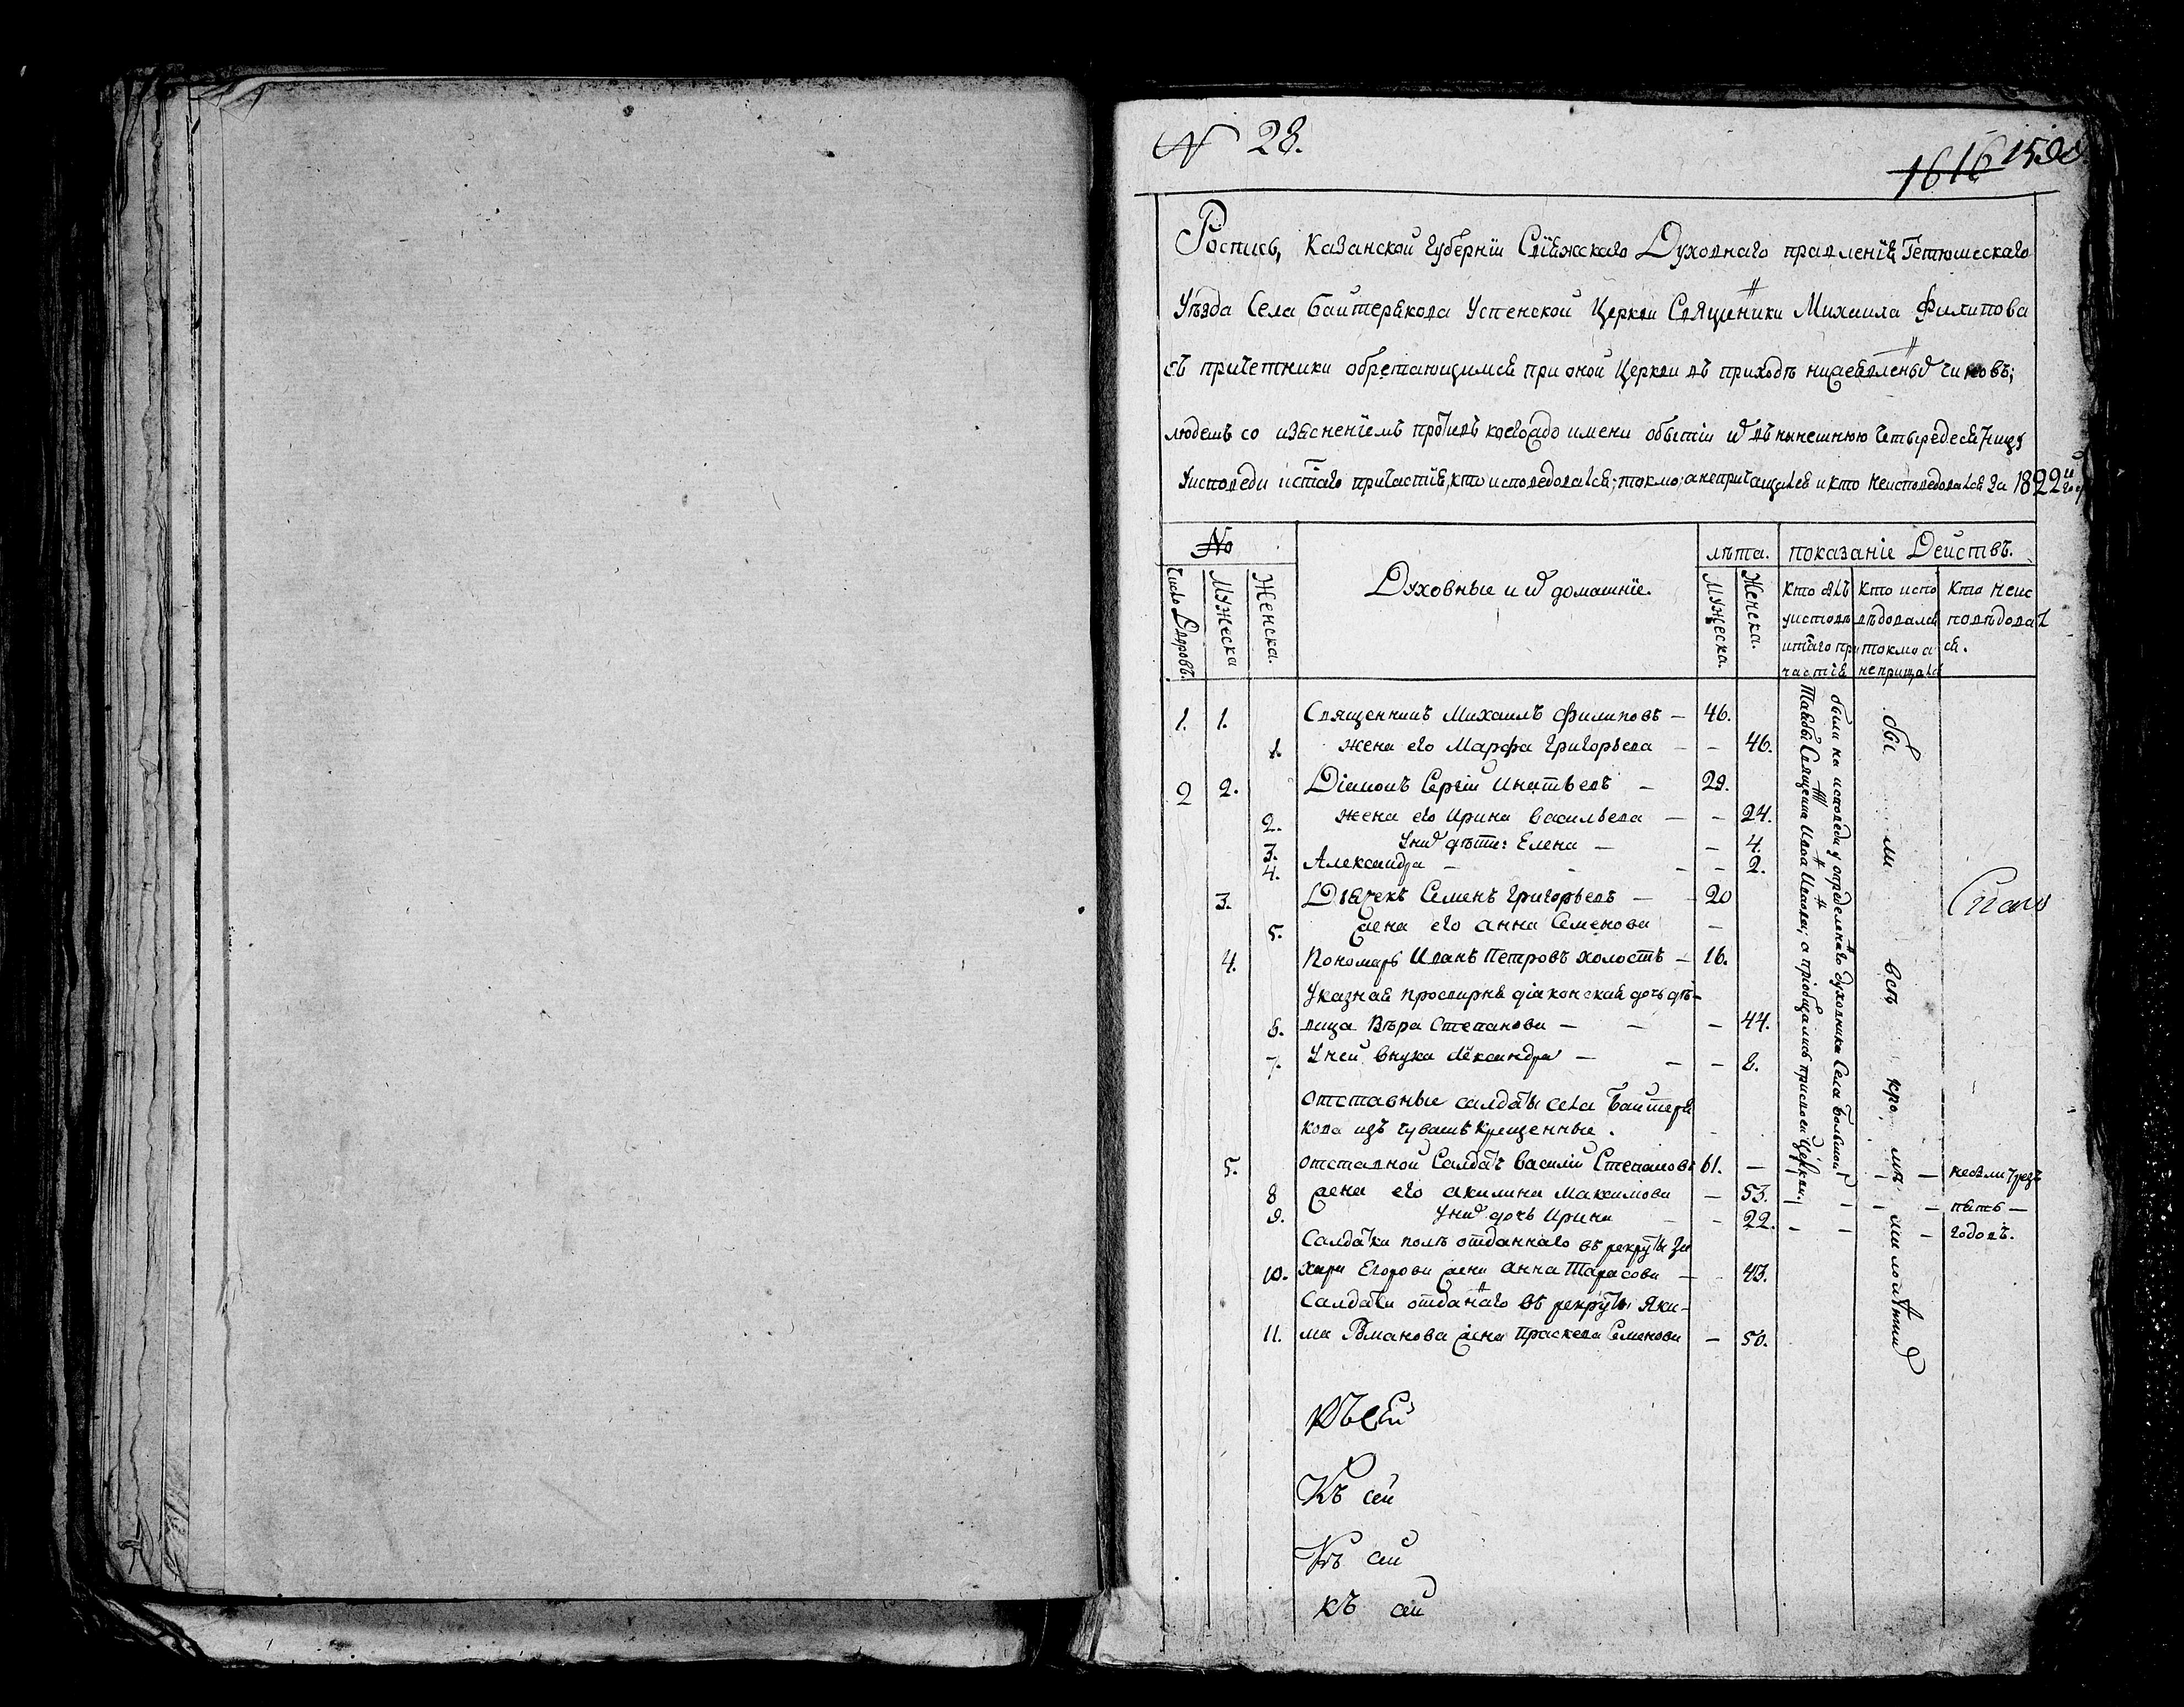 № 28.
1616 1598
Роспись, Казанской Губерніи Свіяжскаго Духовнаго правленія Тетюшескаго
Уѣзда Села Байтерякова Успенской Церкви Священника Михаила Филипова
съ причетники обретающимся при оной Церкви въ приходѣ
людемъ со изяснениемъ противъ коегождо имени о бытіи ихъ въ нынешнюю четыредесятницу
У исповеди и стаго причастія, кто исповедовался; токмо; а непричащался и кто неисповедовался за 1822й годъ
№
лѣта.
показаніе Деиствъ.
Число Дворовъ.
Мужеска
Женска.
Духовные и ихъ домашніе.
Мужеска.
Женска.
кто былъ
у исповѣ
и стаго при
частія
Кто испо
вѣдовался
токмо а
не причащался
Кто неис
повѣдовал
ся.
1. 1. Священникъ Михаилъ Филиповъ — 46.
1. жена его Марфа Григорьева — — 46.
2 2. Діаконъ Сергій Игнатьевъ — 29.
2. жена его Ирина Васильева — — 24.
3. У нихъ дѣти: Елена — — 4.
4. Александра — — — 2.
3. Дьячекъ Семенъ Григорьевъ — — 20
5. жена его Анна Семенова —
4. Пономарь Иванъ Петровъ холостъ — 16.
Указная просвирня діаконская дочь дѣ-
6. вица Вѣра Степанова — — — 44.
7. У ней внука Александра — — — 8.
Отставные салдаты села Байтеря
кова изъ чувашъ крещенные.
5. отставной Салдатъ Василій Степановъ 61. — — — — небыли чрезъ
8 жена его Акилина Максимова — 53. — — — — пять —
9. У нихъ дочь Ирина — — 22. — — — годовъ.
Салдатки полѣ отданнаго въ рекруты За
10. хара Егорова жена Анна Тарасова — — 43.
Салдатки отданнаго въ рекруты Яки-
11. ма Романова жена Праскева Семенова — 50.
были на исповеди у определеннаго духовника Села Большой
Таябы Священника Ивана Иванова; а приобщались при своей Церкви.
бы ли всѣ кро мѣ малолѣтних
Къ сей
Къ сей
Къ сей
къ сей